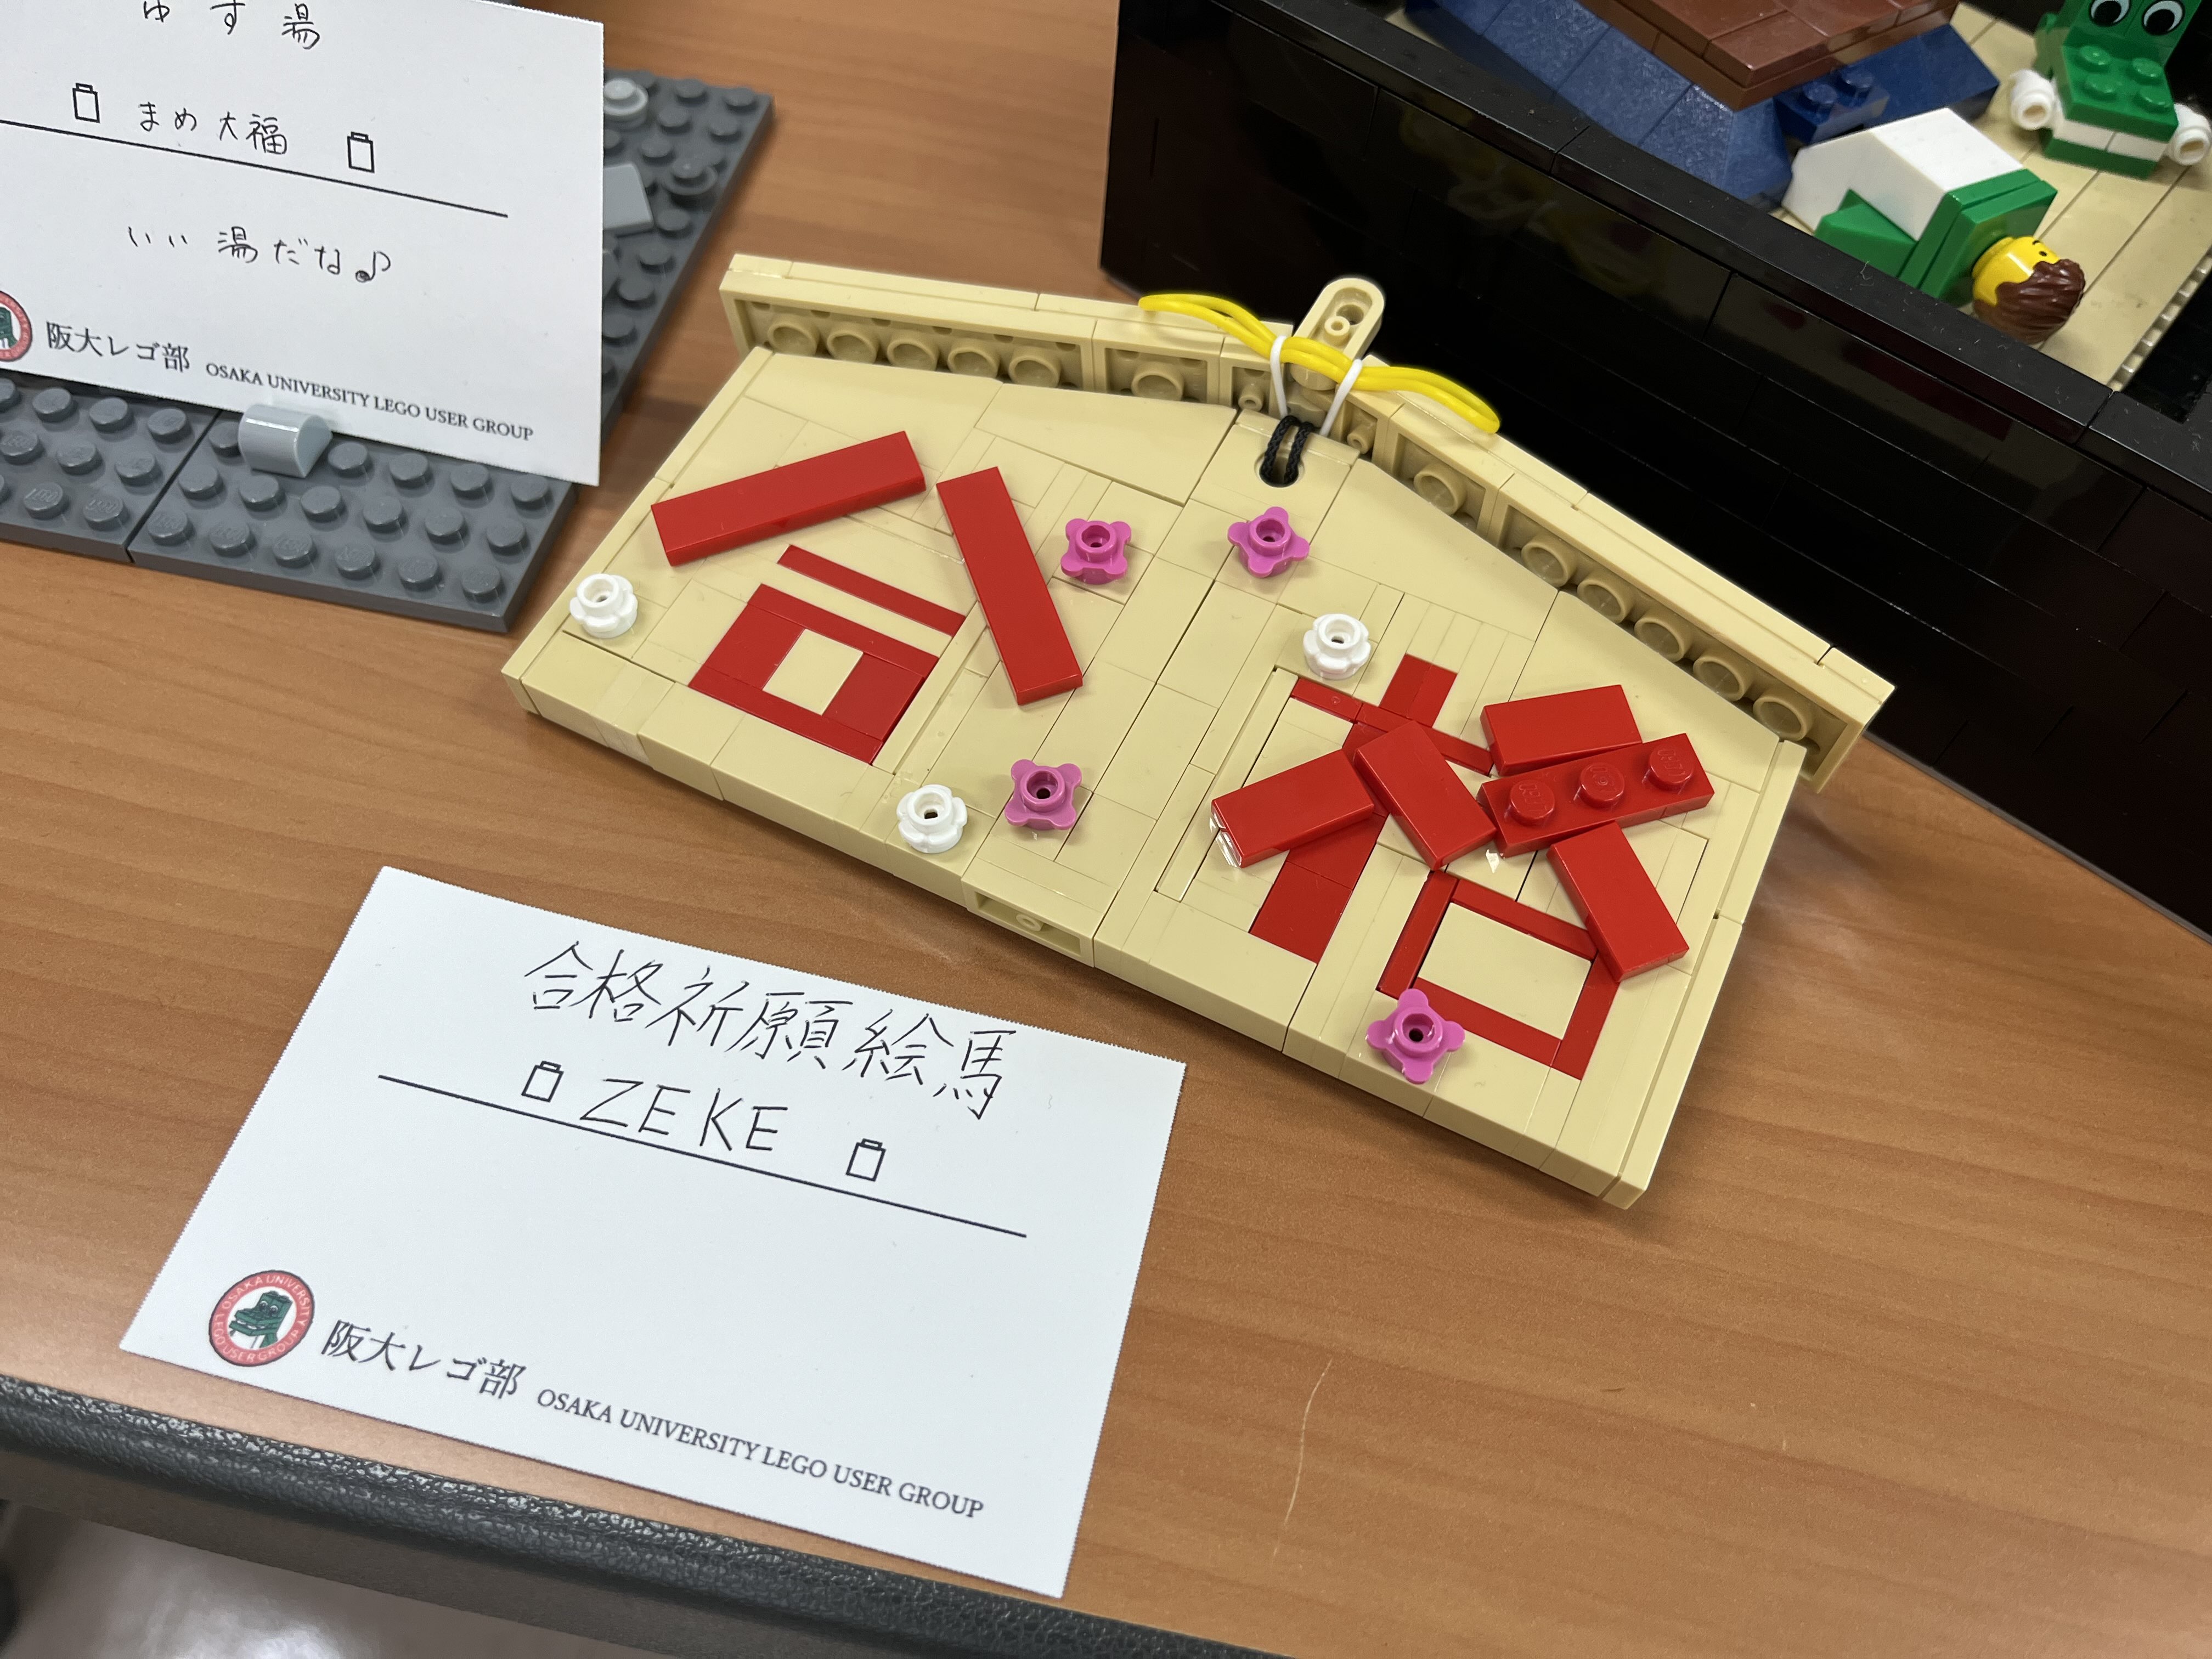 ゆず湯
まめ大福
いい湯だな♪
阪大レゴ部 OSAKA UNIVERSITY LEGO USER GROUP
合格
合格祈願絵馬
ZEKE
OSAKA UNIVERSITY LEGO USER GROUP
阪大レゴ部 OSAKA UNIVERSITY LEGO USER GROUP